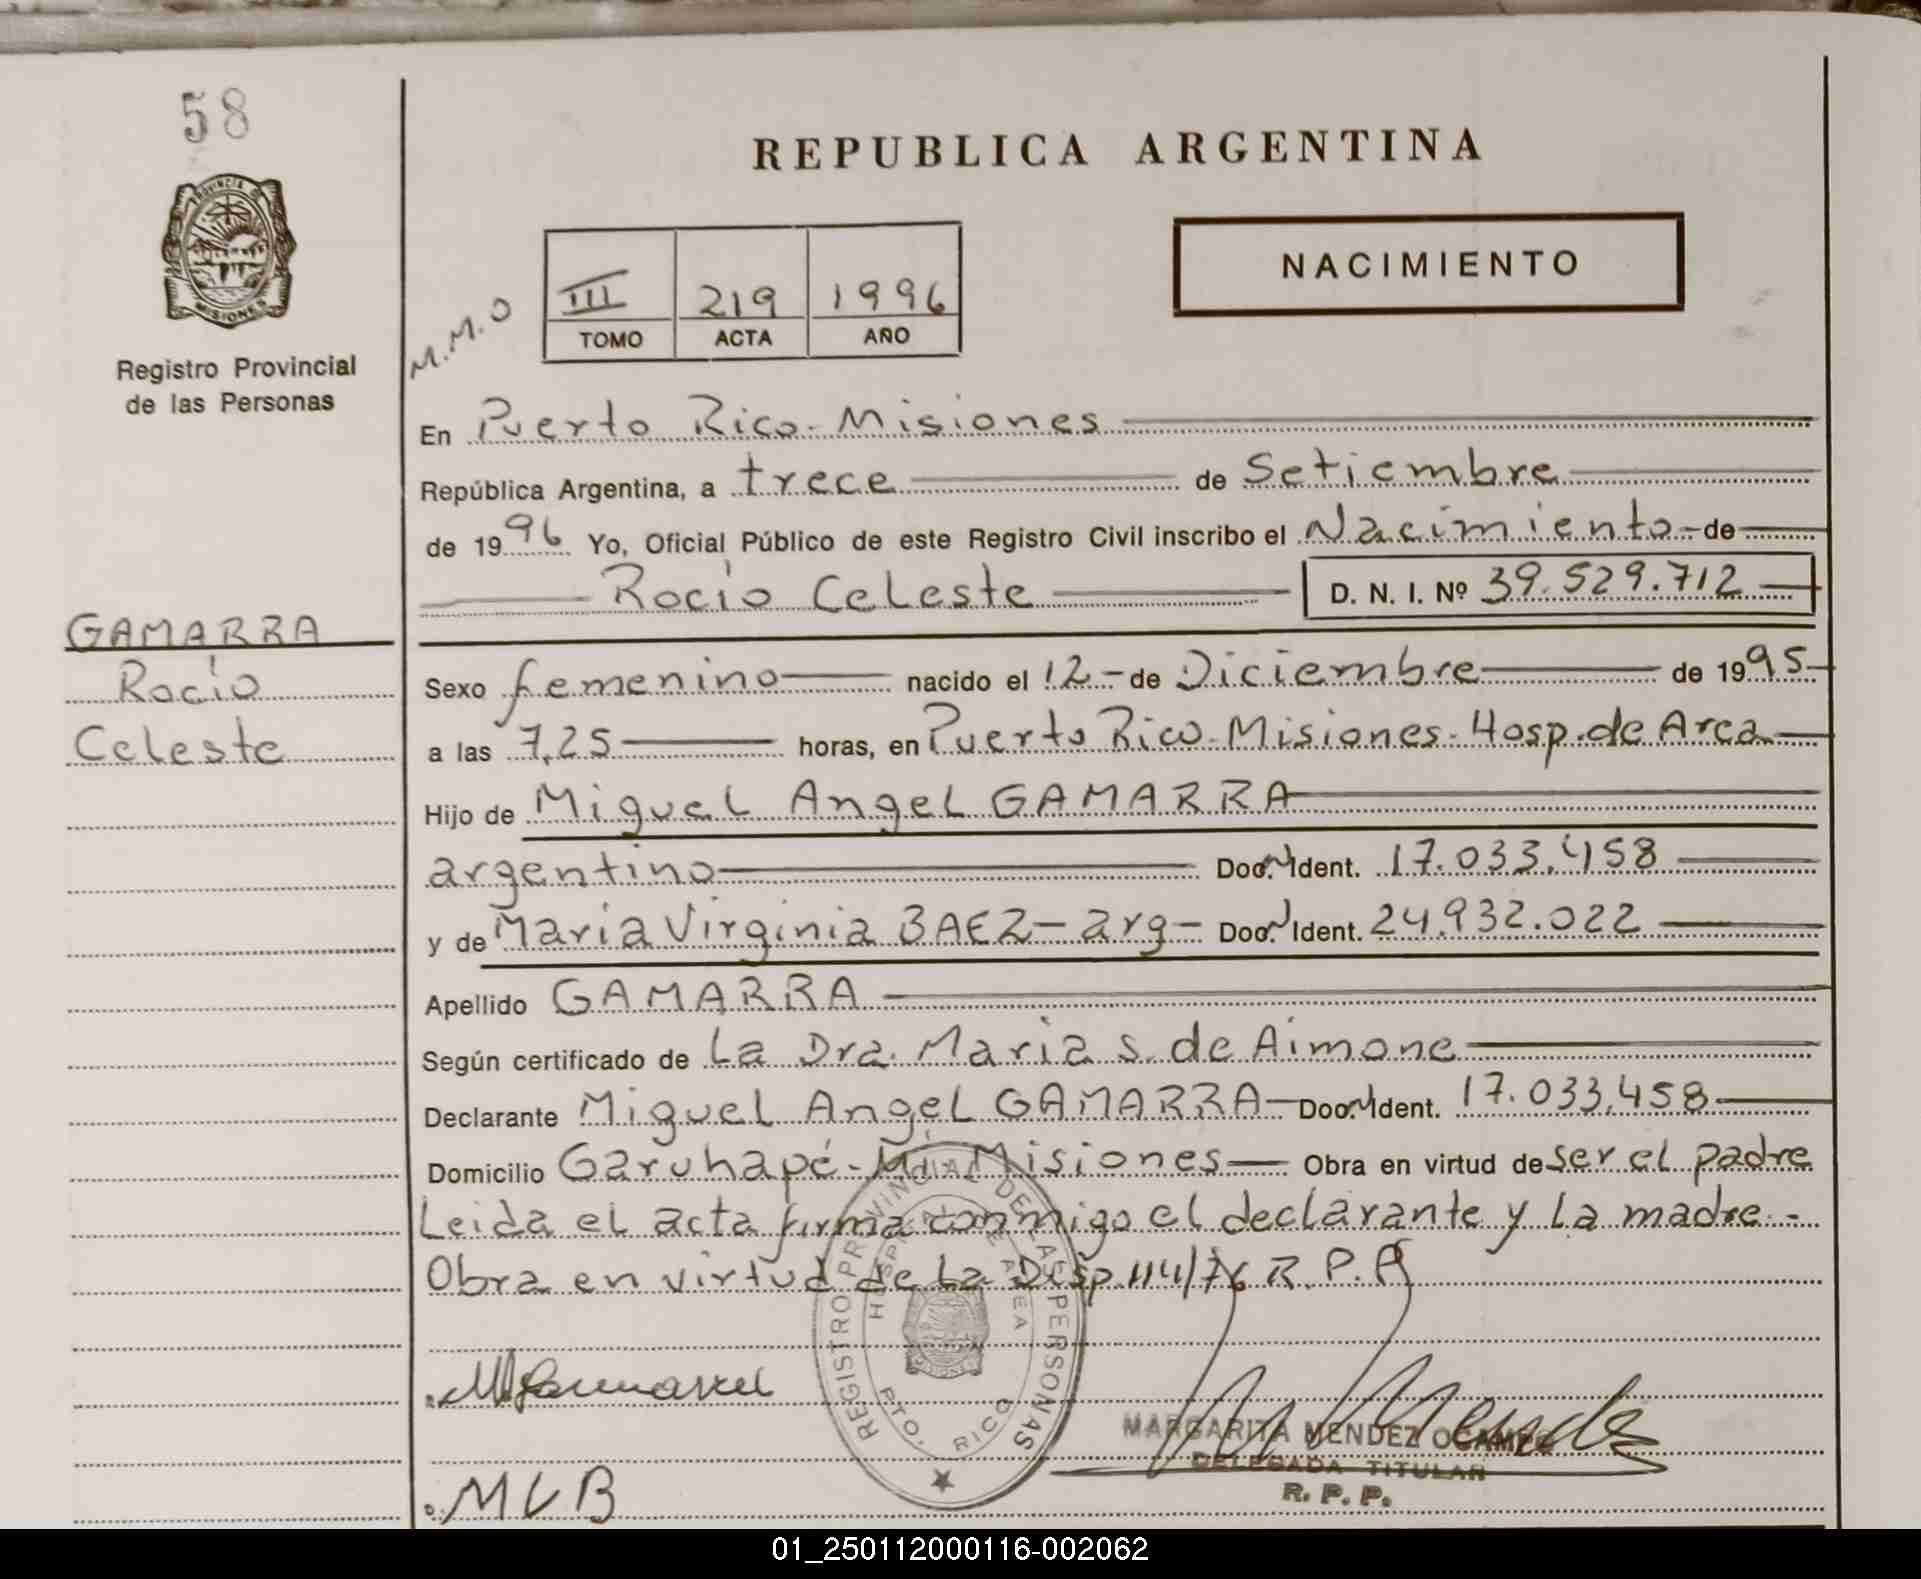 58
REPUBLICA ARGENTINA
PROVINCIA DE
MISIONES
NACIMIENTO
III 219 1996
TOMO ACTA AÑO
M.M.O
Registro Provincial
de las Personas
En Puerto Rico-Misiones
República Argentina, a trece de Setiembre
de 1996 Yo, Oficial Público de este Registro Civil inscribo el Nacimiento-de
Rocío Celeste D. N. I. Nº 39.529.712
GAMARRA
Rocío
Celeste
Sexo femenino nacido el 12-de Diciembre de 1995
a las 7,25 horas, en Puerto Rico-Misiones-Hosp.de Area
Hijo de Miguel Angel GAMARRA
argentino Doc.N Ident. 17.033.458
y de María Virginia BAEZ-arg- Doc.N Ident. 24.932.022
Apellido GAMARRA
Según certificado de La Dra. María S. de Aimone
Declarante Miguel Angel GAMARRA-Doc.N Ident. 17.033.458
Domicilio Garuhapé-Mi-Misiones Obra en virtud de ser el padre
Leida el acta firma conmigo el declarante y La madre.-
Obra en virtud de La Disp.114/76 R.P.P
REGISTRO PROVINCIAL DE LAS PERSONAS
HOSPITAL DE AREA
MISIONES
PTO. RICO
MARGARITA MENDEZ OCAMPO
DELEGADA TITULAR
R. P. P.
MVB
01_250112000116-002062